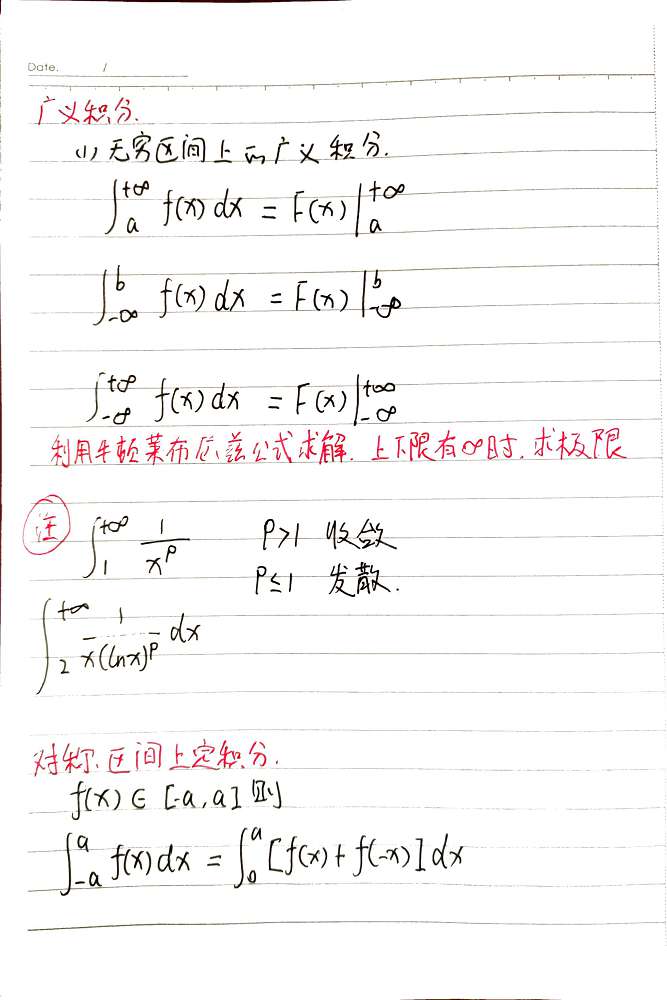 Date. /
广义积分.
(1) 无穷区间上的广义积分.
∫_a^{+∞} f(x) dx = F(x)|_a^{+∞}
∫_{-∞}^b f(x) dx = F(x)|_{-∞}^b
∫_{-∞}^{+∞} f(x) dx = F(x)|_{-∞}^{+∞}
利用牛顿莱布尼兹公式求解. 上下限有∞时. 求极限
注 ∫_1^{+∞} 1/x^p P>1 收敛
P≤1 发散.
∫_2^{+∞} 1/(x(lnx)^p) dx
对称区间上定积分.
f(x) ∈ [-a, a] 则
∫_{-a}^a f(x) dx = ∫_0^a [f(x) + f(-x)] dx